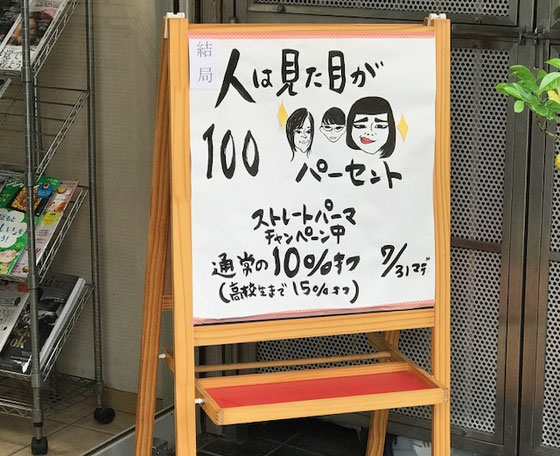 結局
人は見た目が
100
パーセント
ストレートパーマ
チャンペーン中
通常の10%オフ
7/31マデ
(高校生まで15%オフ)